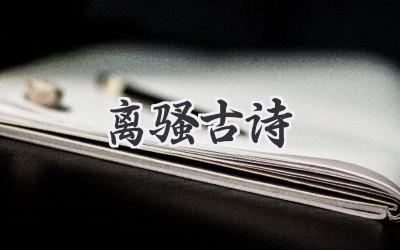 离骚古诗